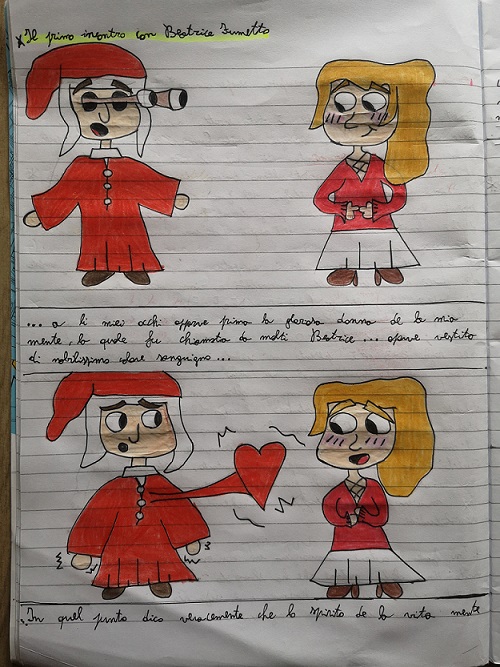 Il primo incontro con Beatrice Fumetto
... a li miei occhi apparve prima la gloriosa donna de la mia
mente, la quale fu chiamata da molti Beatrice ... apparve vestita
di nobilissimo colore sanguigno ...
In quel punto dico veracemente che lo spirito de la vita mente